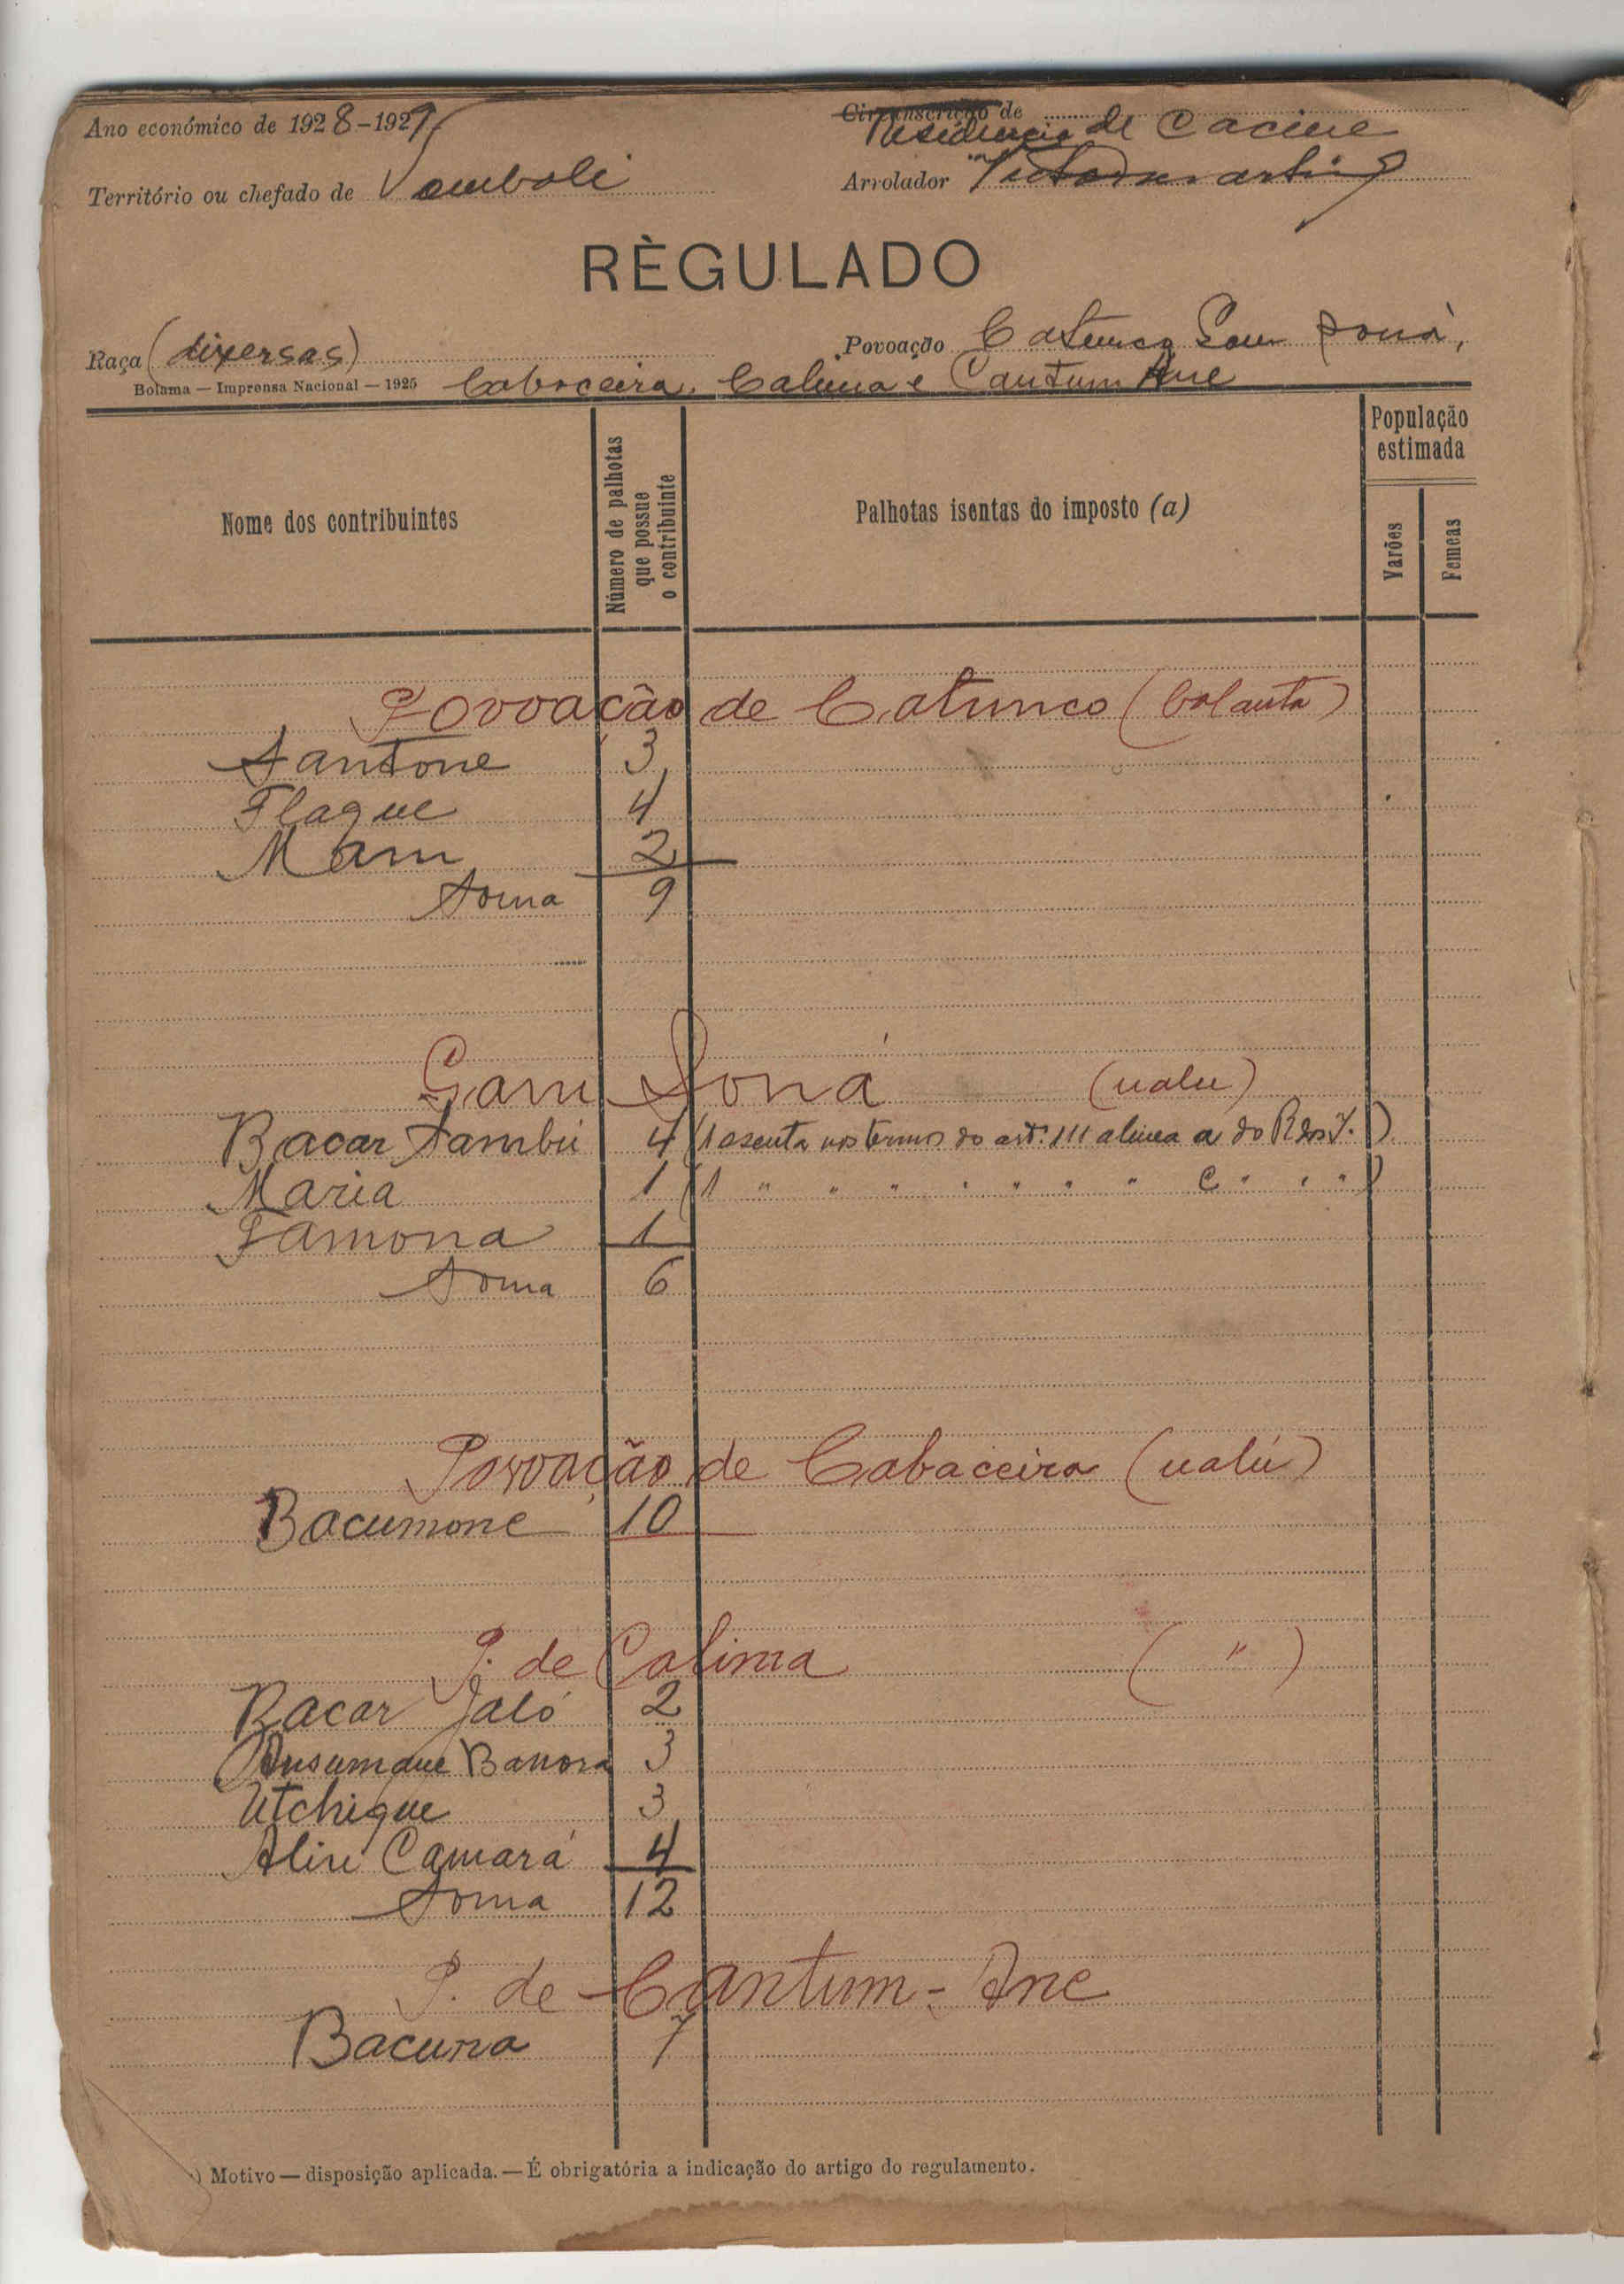 Ano económico de 1928-1929
Circunscrição de
Residencia de Cacine
Território ou chefado de
Arrolador
RÈGULADO
Raça (diversas)
Povoação Catunco Gam Soná,
Bolama — Imprensa Nacional — 1925 Cabaceira, Calima e Cantum Ane
Nome dos contribuintes
Número de palhotas que possue o contribuinte
Palhotas isentas do imposto (a)
População estimada
Varões
Femeas
Povoação de Catunco (balanta)
Santone 3
Flaque 4
Mam 2
Soma 9
Gam Soná (nalu)
Bacar Sambú 4 (1 esenta nos termos do art.º 111 alinea a do R do I.)
Maria 1 (1 " " " " " " " C " " ")
Famona 1
Soma 6
Povoação de Cabaceira (nalú)
Bacumone 10
P. de Calima ( " )
Bacar Jaló 2
Banora 3
Utchique 3
Camará 4
Soma 12
P. de Cantum-Ane
Bacuna 7
) Motivo — disposição aplicada. — É obrigatória a indicação do artigo do regulamento.